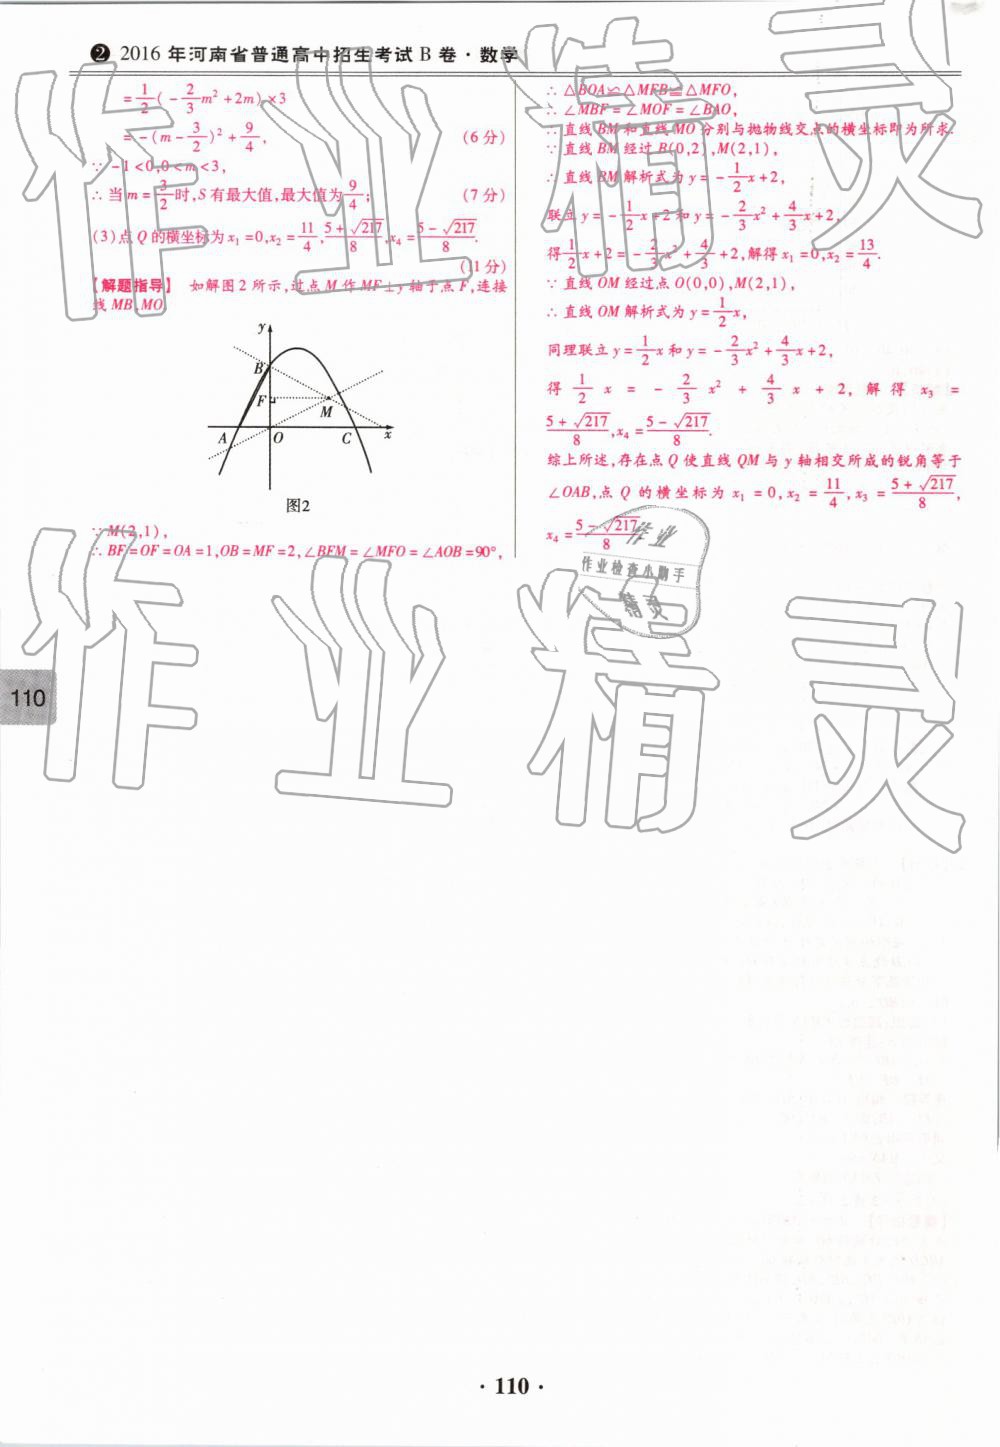 ❷ 2016 年河南省普通高中招生考试 B 卷·数学
= 1/2(-2/3m²+2m)×3
= -(m-3/2)²+9/4, (6 分)
∵ -1<0,0<m<3,
∴ 当 m=3/2时,S 有最大值,最大值为9/4; (7 分)
(3)点 Q 的横坐标为 x₁=0,x₂=11/4,(5+√217)/8,x₄=(5-√217)/8.
(11 分)
【解题指导】 如解图 2 所示,过点 M 作 MF⊥y 轴于点 F,连接
线 MB,MO
y
B
F
M
A
O
C
x
图2
∵ M(2,1),
∴ BF=OF=OA=1,OB=MF=2,∠BFM=∠MFO=∠AOB=90°,
∴ △BOA≌△MFB≌△MFO,
∴ ∠MBF=∠MOF=∠BAO,
∴ 直线 BM 和直线 MO 分别与抛物线交点的横坐标即为所求.
∵ 直线 BM 经过 B(0,2),M(2,1),
∴ 直线 BM 解析式为 y=-1/2x+2,
联立 y=-1/2x+2 和 y=-2/3x²+4/3x+2,
得1/2x+2=-2/3x²+4/3+2,解得 x₁=0,x₂=13/4.
∵ 直线 OM 经过点 O(0,0),M(2,1),
∴ 直线 OM 解析式为 y=1/2x,
同理联立 y=1/2x 和 y=-2/3x²+4/3x+2,
得 1/2 x = -2/3 x² + 4/3 x + 2, 解 得 x₃ =
(5+√217)/8,x₄=(5-√217)/8.
综上所述,存在点 Q 使直线 QM 与 y 轴相交所成的锐角等于
∠OAB,点 Q 的横坐标为 x₁=0,x₂=11/4,x₃=(5+√217)/8,
x₄=(5-√217)/8
作业
作业检查小助手
精灵
作业精灵
作业精灵
110
·110·